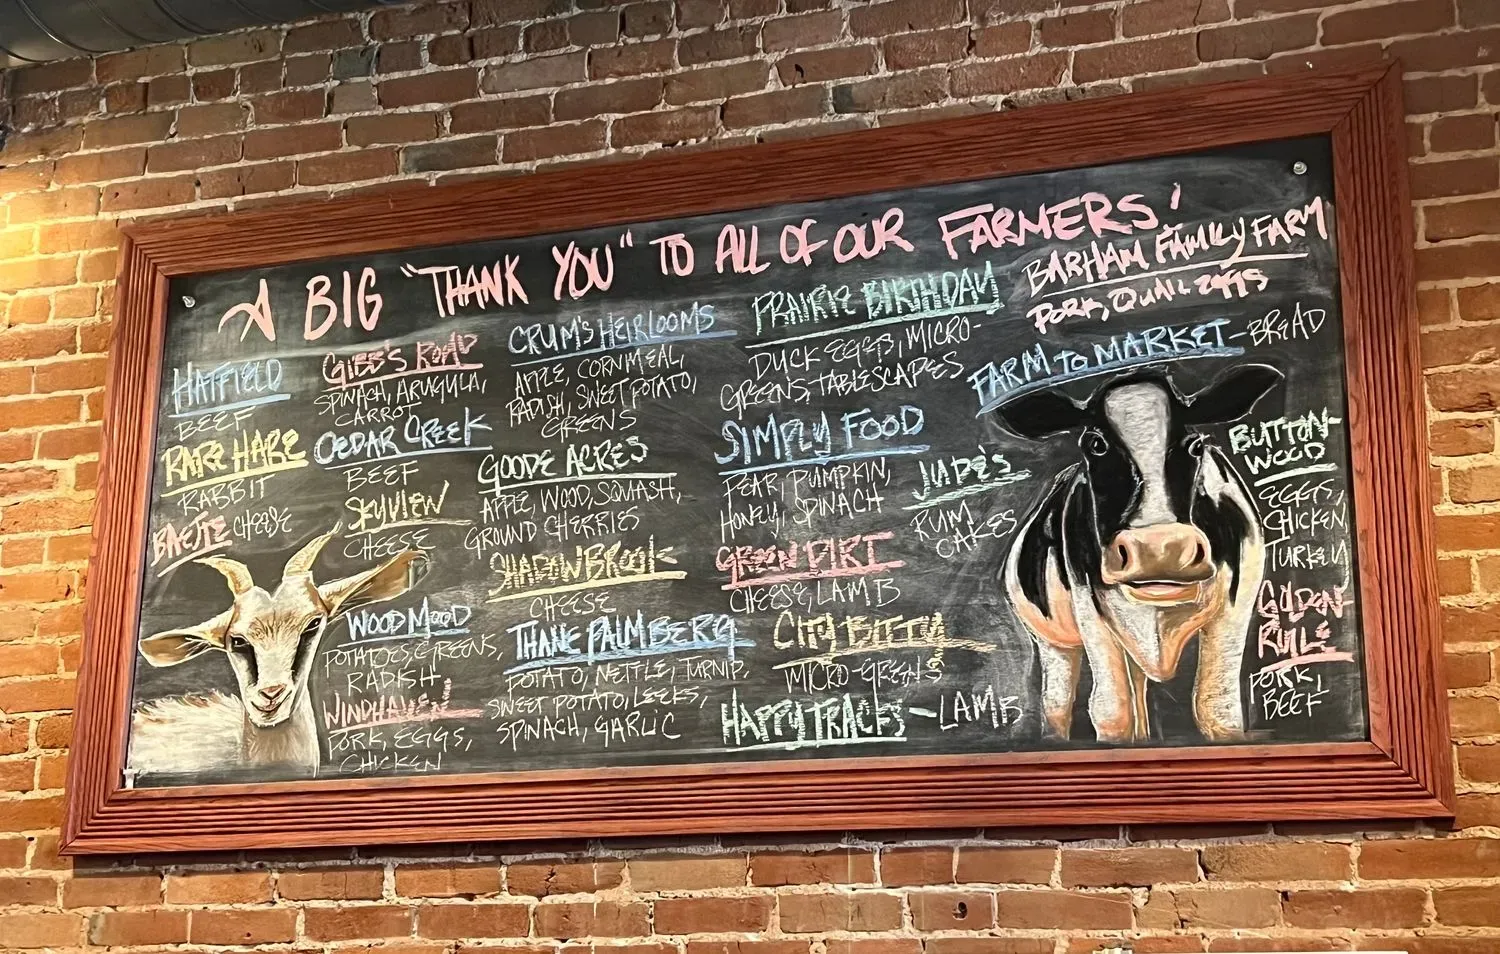 A BIG "THANK YOU" TO ALL OF OUR FARMERS!
HATFIELD
BEEF
RARE HARE
RABBIT
BAETJE CHEESE
GIBB'S ROAD
SPINACH, ARUGULA,
CARROT
CEDAR CREEK
BEEF
SKYVIEW
CHEESE
WOODMOOD
POTATOES, GREENS,
RADISH
WINDHAVEN
PORK, EGGS,
CHICKEN
CRUM'S HEIRLOOMS
APPLE, CORNMEAL,
RADISH, SWEET POTATO,
GREENS
GOODE ACRES
APPLE, WOOD, SQUASH,
GROUND CHERRIES
SHADOWBROOK
CHEESE
THANE PALMBERG
POTATO, NETTLE, TURNIP,
SWEET POTATO, LEEKS,
SPINACH, GARLIC
PRAIRIE BIRTHDAY
DUCK EGGS, MICRO-
GREENS, TABLESCAPES
SIMPLY FOOD
PEAR, PUMPKIN,
HONEY, SPINACH
GREEN DIRT
CHEESE, LAMB
CITY BITTY
MICRO-GREENS
HAPPY TRACKS - LAMB
JUDE'S
RUM
CAKES
BARHAM FAMILY FARM
PORK, QUAIL EGGS
FARM TO MARKET - BREAD
BUTTON-
WOOD
EGGS,
CHICKEN,
TURKEY
GOLDEN
RULE
PORK,
BEEF